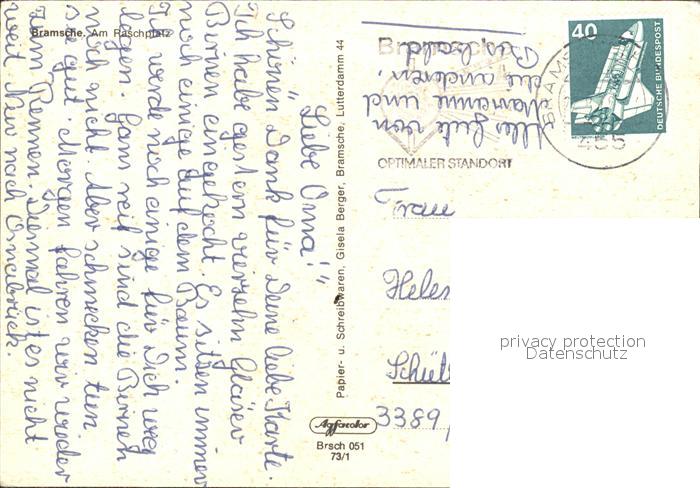 Bramsche. Am Raschplatz
Liebe Oma!
Schönen Dank für Deine liebe Karte.
Ich habe gestern vierzehn Gläser
Birnen eingekocht. Es sitzen immer
noch einige auf dem Baum.
Ich werde noch einige für Dich weg
legen. Ganz reif sind die Birnen
noch nicht. Aber schmecken tun
sie gut. Morgen fahren wir wieder
zum Rennen. Diesmal ist es nicht
weit. Nur nach Osnabrück.
Alles Gute von
Marianne und
die anderen.
Bis bald
Papier- u. Schreibwaren, Gisela Berger, Bramsche, Lutterdamm 44
Agfacolor
Brsch 051
73/1
OPTIMALER STANDORT
BRAMS
455
40
DEUTSCHE BUNDESPOST
Frau
Helen
Schüt
3389
privacy protection
Datenschutz